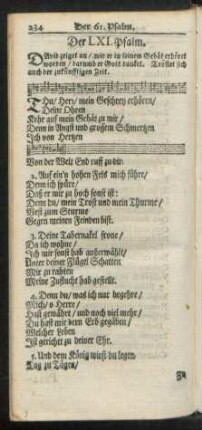 234 Der 61. Psalm.
Der LXI. Psalm.
David zeiget an / wie er in seinem Gebät erhöret
worden / darumb er Gott dancket. Tröstet sich
auch der zukünfftigen Zeit.
THu / Herr / mein Geschrey erhören /
Deine Ohren
Kehr auf mein Gebät zu dir /
Denn in Angst und grossem Schmertzen
Ich von Hertzen
Von der Welt End ruff zu dir.
2. Auf ein'n hohen Fels mich führ /
Denn ich spüre /
Daß er mir zu hoch sonst ist:
Denn du / mein Trost und mein Thurne /
Vest zum Sturme
Gegen meinen Feinden bist.
3. Deine Tabernakel frone /
Da ich wohne /
Ich mir sonst hab außerwählt /
Unter deiner Flügel Schatten
Mir zu rahten
Meine Zuflucht hab gestellt.
4. Denn du / was ich nur begehre /
Mich / o Herre /
Hast gewährt / und noch viel mehr /
Du hast mir dein Erb gegäben /
Welcher Leben
Ist gericht zu deiner Ehr.
5. Und dem König wirst du legen /
Tag zu Tägen /